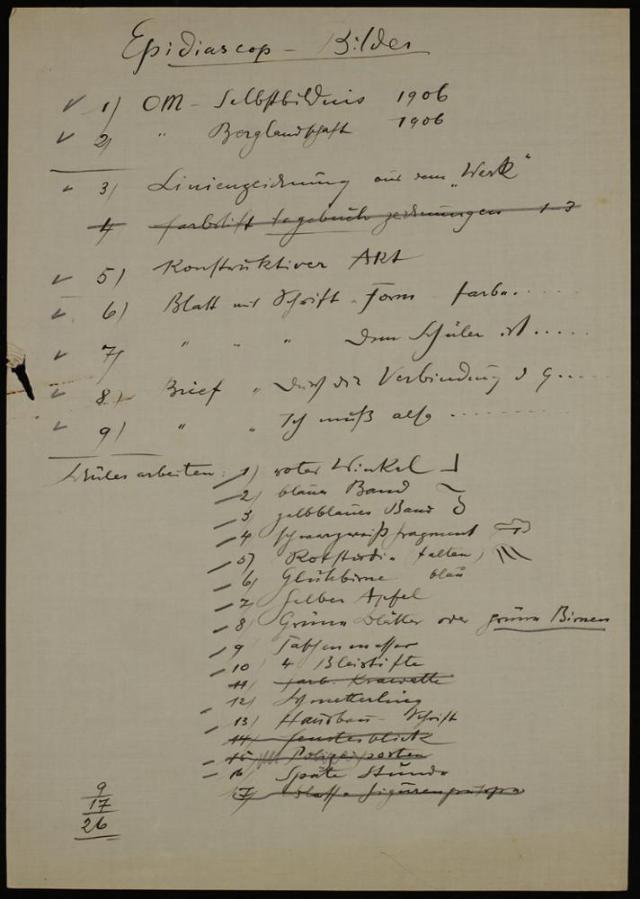 Epidiascop - Bilder
✓ 1) OM - Selbstbildnis 1906
✓ 2) " Berglandschaft 1906
✓ 3) Linienzeichnung aus dem „Werk"
4 Farbstift Tagebuch zeichnungen 1-3
✓ 5) Konstruktiver Akt
✓ 6) Blatt mit Schrift - Form - Farbe.....
✓ 7) " " " Dem Schüler ist.....
✓ 8) Brief " Durch die Verbindung d G...
✓ 9) " " Ich muß also .........
Schülerarbeiten: 1) roter Winkel
2) blaues Band
3) gelbblaues Band
4 schwarzweiß fragment
5) Rotstudie (falten)
6) Glühbirne blau
7 Gelber Apfel
8) Grüne Blätter oder grüne Birnen
9 Taschenmesser
10 4 Bleistifte
11) farb. Krawatte
12) Schmetterling
13) Hausbau - Schrift
14) fensterblick
15 Polizeiposten
16 Späte Stunde
17)
9
17
26